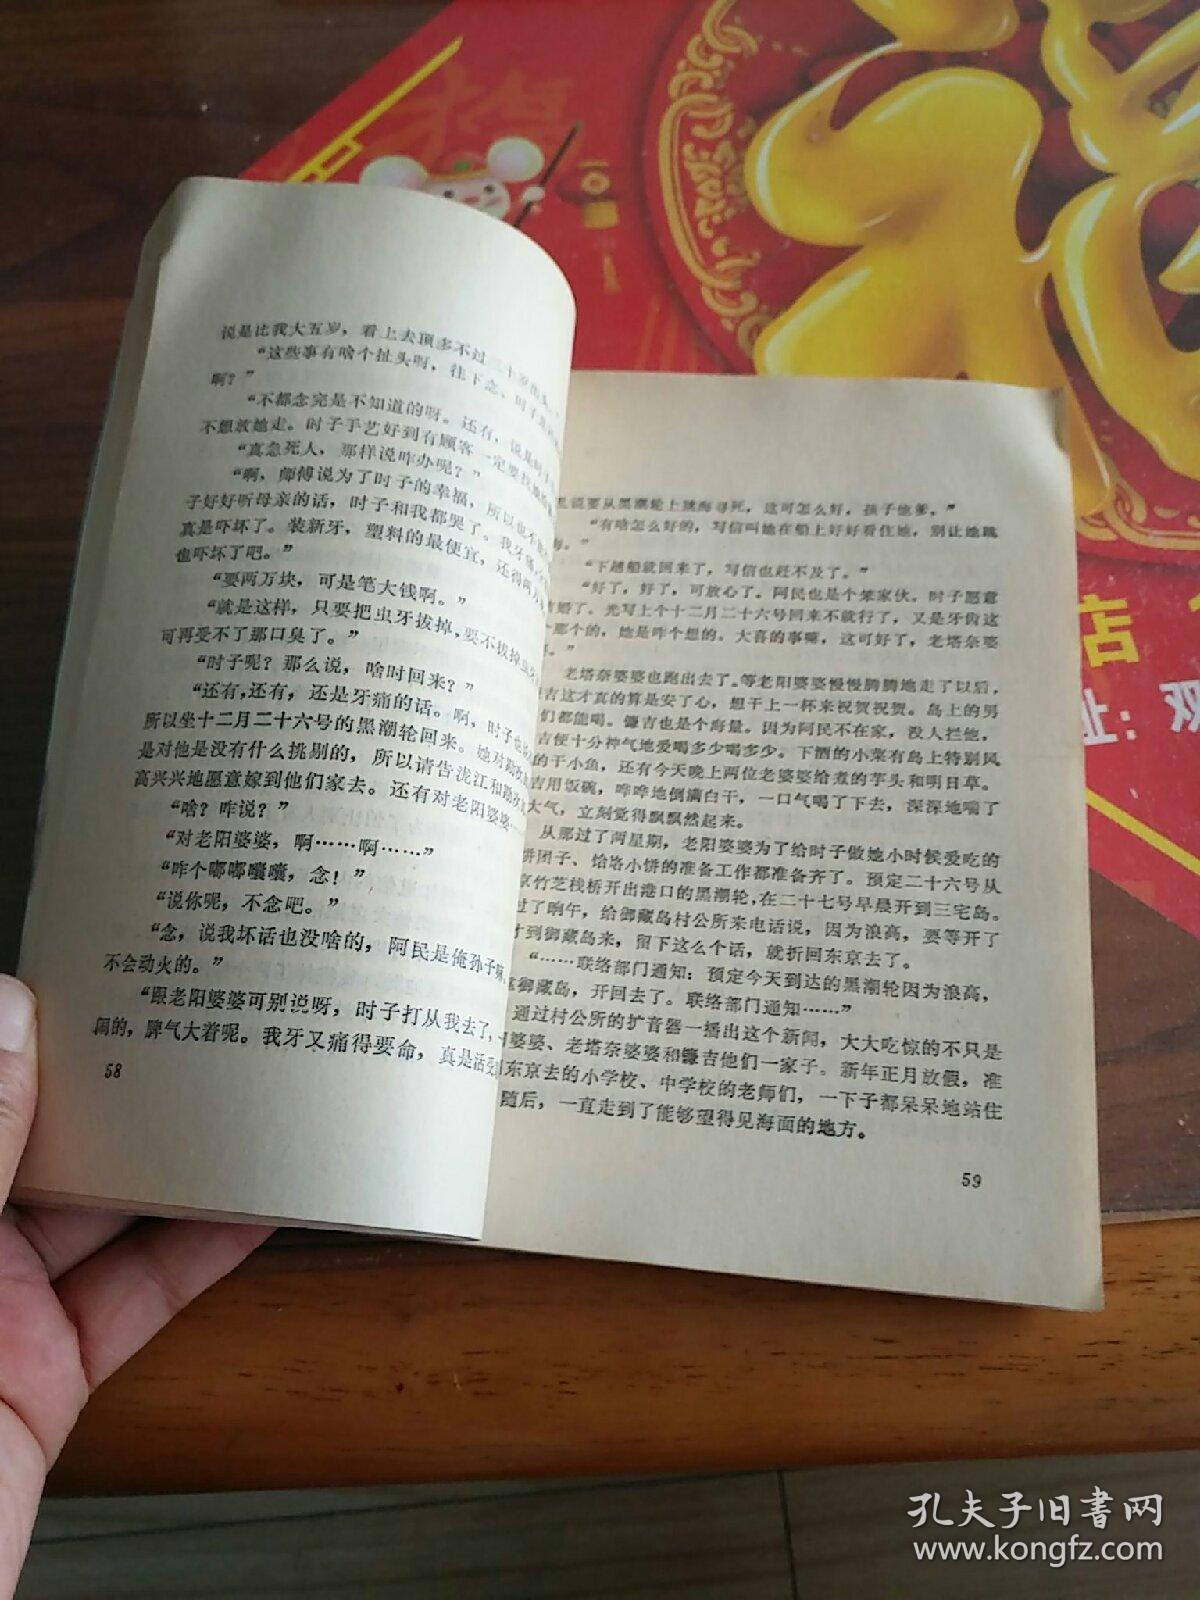 说是比我大五岁，看上去顶多不过三十岁
“这些事有啥个扯头呀，往下念，时子
啊？”
“不都念完是不知道的呀。还有，说是时
不想放她走。时子手艺好到有顾客一定要找她
“真急死人，那样说咋办呢？”
“啊，师傅说为了时子的幸福，所以也不
子好好听母亲的话，时子和我都哭了。我牙痛，
真是吓坏了。装新牙，塑料的最便宜，还得两万
也吓坏了吧。”
“要两万块，可是笔大钱啊。”
“就是这样，只要把虫牙拔掉，要不拔掉虫牙
可再受不了那口臭了。”
“时子呢？那么说，啥时回来？”
“还有，还有，还是牙痛的话。啊，时子也
所以坐十二月二十六号的黑潮轮回来。她对勘次
是对他是没有什么挑剔的，所以请告泷江和勘次
高兴兴地愿意嫁到他们家去。还有对老阳婆婆…
“啥？咋说？”
“对老阳婆婆，啊……啊……”
“咋个嘟嘟囔囔，念！”
“说你呢，不念吧。”
“念，说我坏话也没啥的，阿民是俺孙子嘛，
不会动火的。”
“跟老阳婆婆可别说呀，时子打从我去了，
闹的，脾气大着呢。我牙又痛得要命，真是活受
58
说要从黑潮轮上跳海寻死，这可怎么好，孩子他爹。”
“有啥怎么好的，写信叫她在船上好好看住她，别让她跳
海。”
“下趟船就回来了，写信也赶不及了。”
“好了，好了，可放心了。阿民也是个笨家伙。时子愿意
结婚了。光写上个十二月二十六号回来不就行了，又是牙齿这
个那个的，她是咋个想的。大喜的事嘛，这可好了，老塔奈婆
。”
老塔奈婆婆也跑出去了。等老阳婆婆慢慢腾腾地走了以后，
吉这才真的算是安了心，想干上一杯来祝贺祝贺。岛上的男
们都能喝。镰吉也是个海量。因为阿民不在家，没人拦他，
吉便十分神气地爱喝多少喝多少。下酒的小菜有岛上特别风
的干小鱼，还有今天晚上两位老婆婆给煮的芋头和明日草。
吉用饭碗，哗哗地倒满白干，一口气喝了下去，深深地喘了
大气，立刻觉得飘飘然起来。
从那过了两星期，老阳婆婆为了给时子做她小时候爱吃的
饼团子、饸饹小饼的准备工作都准备齐了。预定二十六号从
京竹芝栈桥开出港口的黑潮轮，在二十七号早晨开到三宅岛。
过了晌午，给御藏岛村公所来电话说，因为浪高，要等开了
才到御藏岛来，留下这么个话，就折回东京去了。
“……联络部门通知：预定今天到达的黑潮轮因为浪高，
御藏岛，开回去了。联络部门通知……”
通过村公所的扩音器一播出这个新闻，大大吃惊的不只是
婆婆、老塔奈婆婆和镰吉他们一家子。新年正月放假，准
东京去的小学校、中学校的老师们，一下子都呆呆地站住
随后，一直走到了能够望得见海面的地方。
59
店
址：双
孔夫子旧书网
www.kongfz.com